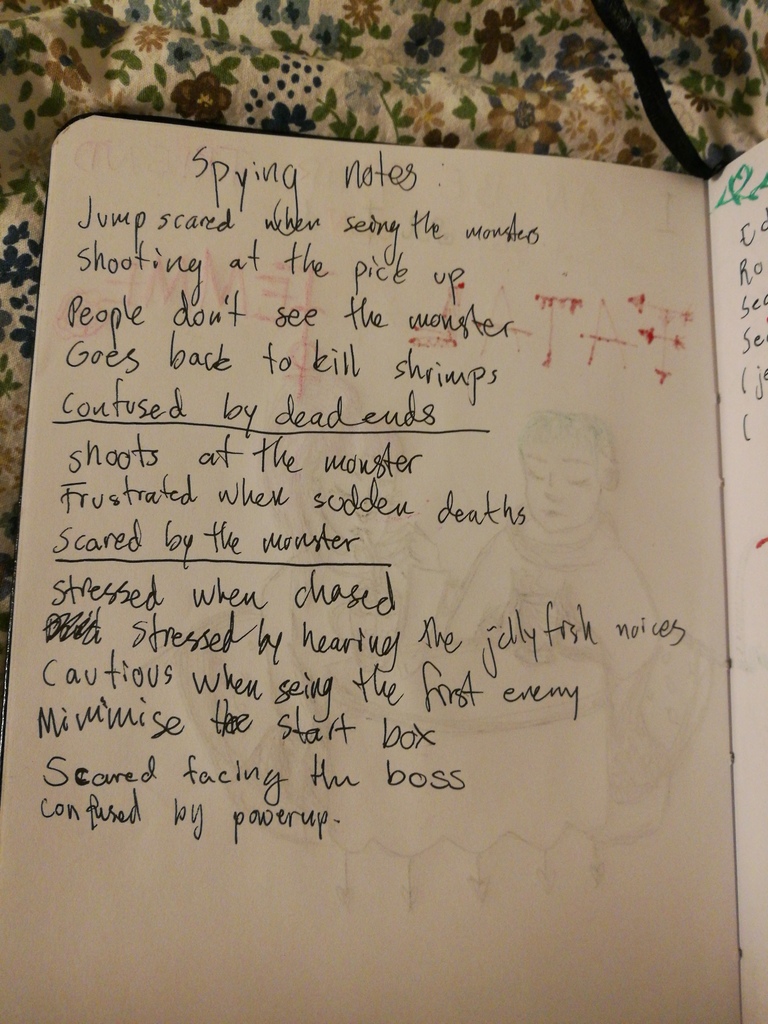 Spying notes :
Jump scared when seing the monsters
Shooting at the pick up
People don't see the monster
Goes back to kill shrimps
Confused by dead ends
shoots at the monster
Frustrated when sudden deaths
Scared by the monster
Stressed when chased
Stressed by hearing the jellyfish noices
Cautious when seing the first enemy
Minimise the start box
Scared facing the boss
Confused by powerup.